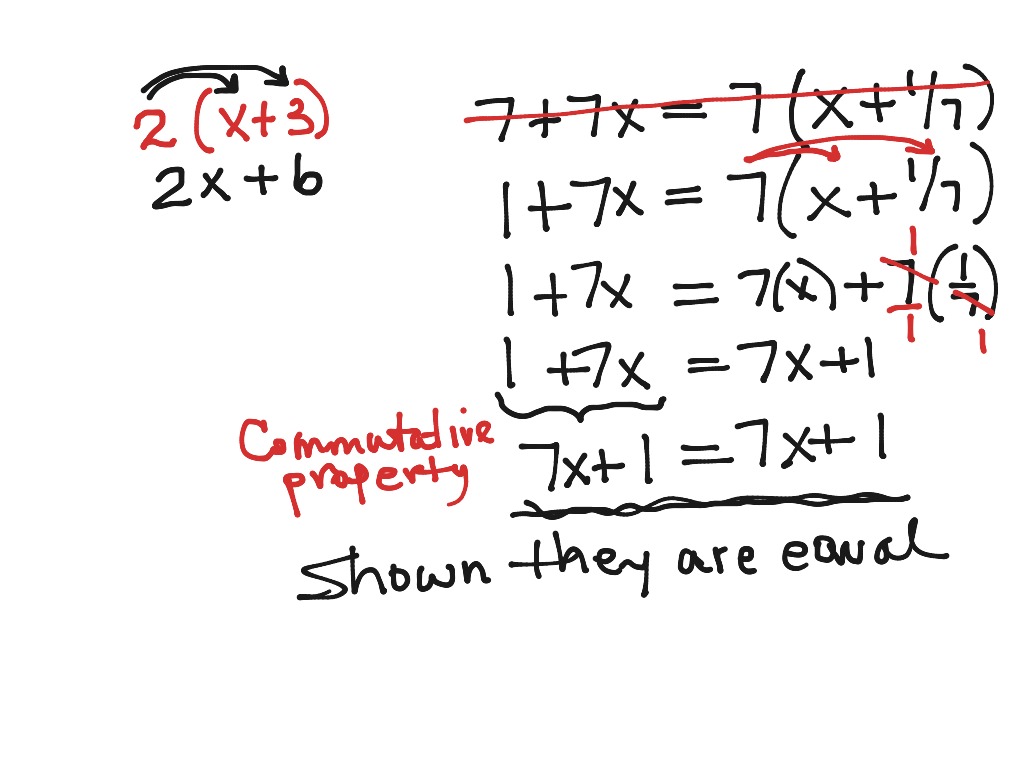 2(x+3)
2x+6
7+7x=7(x+1/7)
1+7x=7(x+1/7)
1+7x=7(x)+7(1/7)
1 1 1
1+7x=7x+1
Commutative
property
7x+1=7x+1
Shown they are equal